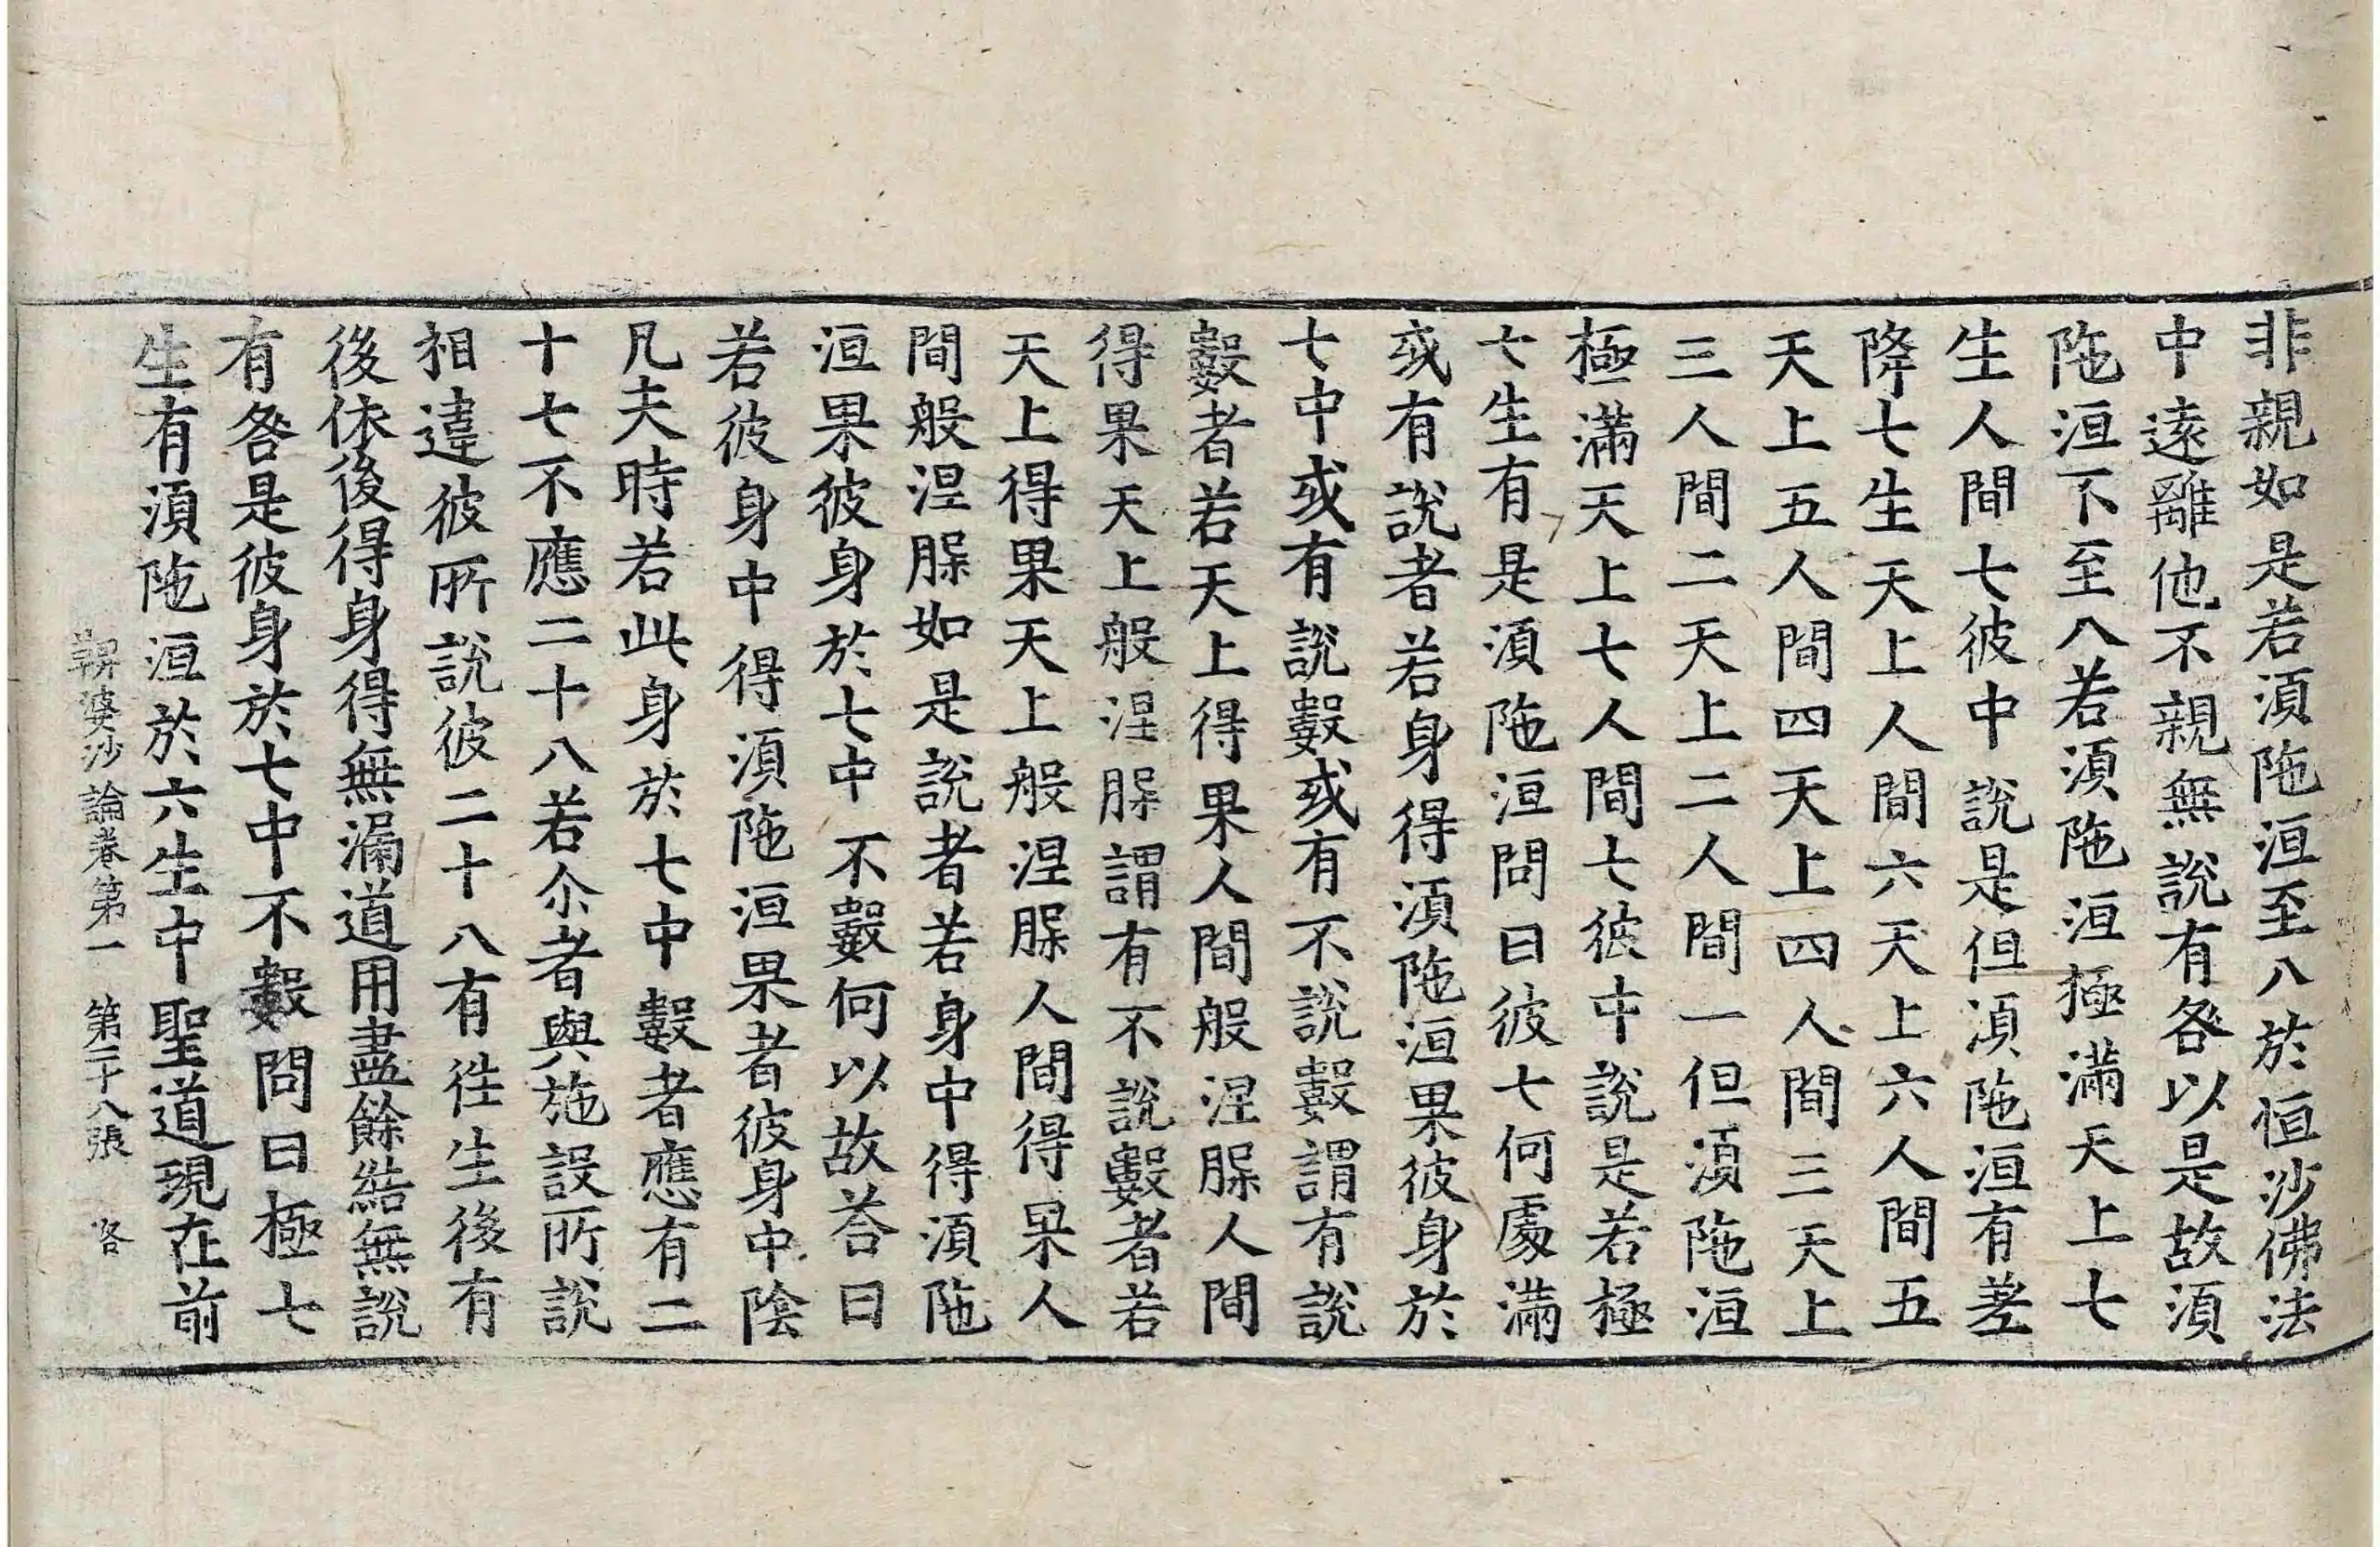 非親如是若湏陁洹至八於恒沙佛法
中遠離他不親無說有咎以是故湏
陁洹下至八若湏陁洹極滿天上七
生人間七彼中說是但湏陁洹有差
降七生天上人間六天上六人間五
天上五人間四天上四人間三天上
三人間二天上二人間一但湏陁洹
極滿天上七人間七彼中說是若極
七生有是湏陁洹問曰彼七何處滿
或有說者若身得湏陁洹果彼身於
七中或有說數或有不說數謂有說
數者若天上得果人間般涅脲人間
得果天上般涅脲謂有不說數者若
天上得果天上般涅脲人間得果人
間般涅脲如是說者若身中得湏陁
洹果彼身於七中不數何以故荅曰
若彼身中得湏陁洹果者彼身中陰
凡夫時若此身於七中數者應有二
十七不應二十八若尒者與施設所說
相違彼所說彼二十八有徃生後有
後依後得身得無漏道用盡餘結無說
有咎是彼身於七中不數問曰極七
生有湏陁洹於六生中聖道現在前
鞞婆沙論卷第一　第二十八張　咎